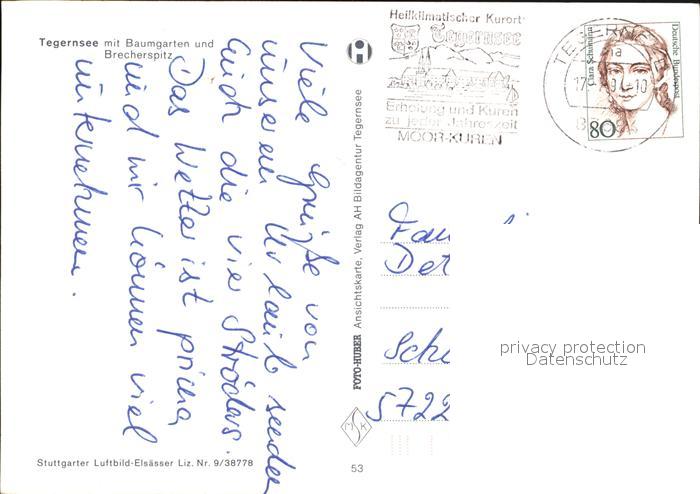 Tegernsee mit Baumgarten und
Brecherspitz
Viele Grüße von
unserem Urlaub senden
Euch die vier Ströders.
Das Wetter ist prima,
und wir können viel
unternehmen.
Stuttgarter Luftbild-Elsässer Liz. Nr. 9/38778
FOTO-HUBER Ansichtskarte, Verlag AH Bildagentur Tegernsee
53
Heilklimatischer Kurort
Tegernsee
Erholung und Kuren
zu jeder Jahreszeit
MOOR-KUREN
TEGERNSEE
Clara Schumann
Deutsche Bundespost
80
Fam
Det
Sch
5722
privacy protection
Datenschutz